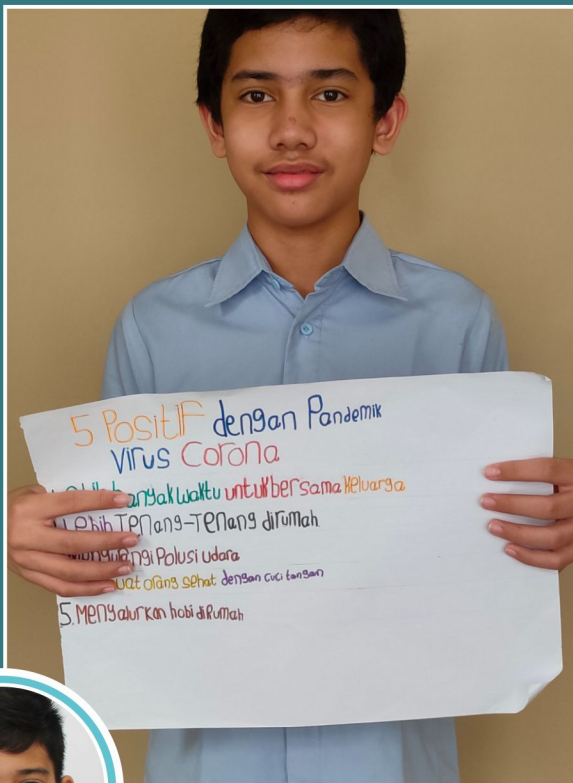 5 Positif dengan Pandemik
Virus Corona
banyak waktu untuk bersama Keluarga
Lebih Tenang-Tenang dirumah
Polusi udara
orang sehat dengan cuci tangan
5. Menyalurkan hobi diRumah